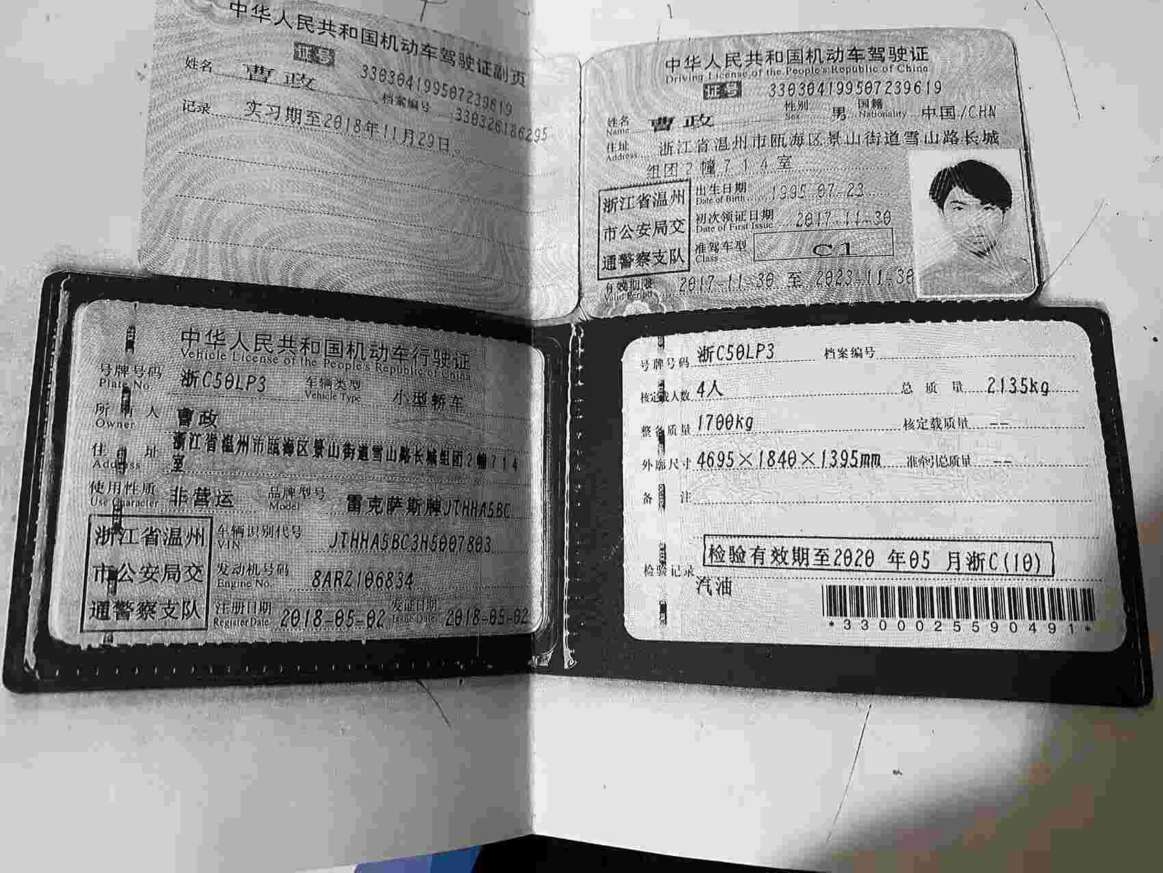 中华人民共和国机动车驾驶证副页
证号 330304199507239619
姓名 曹政 档案编号 330326186295
记录 实习期至2018年11月29日
中华人民共和国机动车驾驶证
Driving License of the People's Republic of China
证号 330304199507239619
姓名 Name 曹政 性别 Sex 男 国籍 Nationality 中国/CHN
住址 Address 浙江省温州市瓯海区景山街道雪山路长城
组团2幢714室
浙江省温州
市公安局交
通警察支队
出生日期 Date of Birth 1995-07-23
初次领证日期 Date of First Issue 2017-11-30
准驾车型 Class C1
有效期限 Valid Period 2017-11-30 至 2023-11-30
中华人民共和国机动车行驶证
Vehicle License of the People's Republic of China
号牌号码 Plate No. 浙C50LP3 车辆类型 Vehicle Type 小型轿车
所有人 Owner 曹政
住址 Address 浙江省温州市瓯海区景山街道雪山路长城组团2幢714
室
使用性质 Use Character 非营运 品牌型号 Model 雷克萨斯牌JTHHA5BC
浙江省温州
市公安局交
通警察支队
车辆识别代号 VIN JTHHA5BC3H5007803
发动机号码 Engine No. 8AR2106834
注册日期 Register Date 2018-05-02 发证日期 Issue Date 2018-05-02
号牌号码 浙C50LP3 档案编号
核定载人数 4人 总质量 2135kg
整备质量 1700kg 核定载质量 --
外廓尺寸 4695×1840×1395mm 准牵引总质量 --
备注
检验有效期至2020 年05 月浙C(10)
检验记录
汽油
*3300025590491*